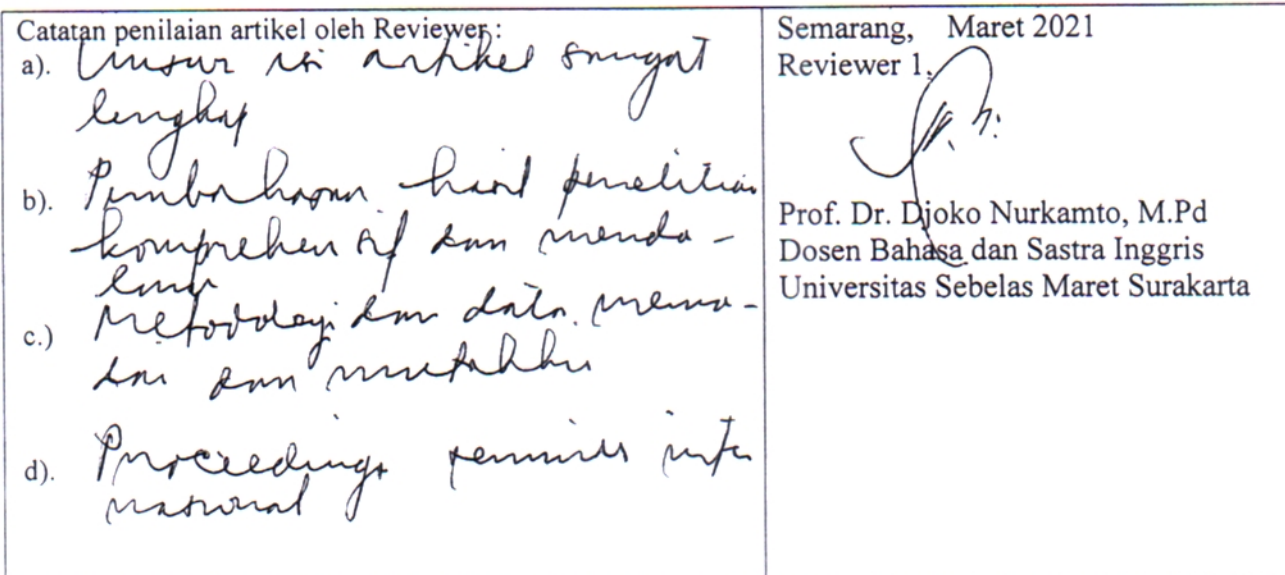 Catatan penilaian artikel oleh Reviewer :
a). Unsur isi artikel sangat
lengkap
b). Pembahasan hasil penelitian
komprehensif dan menda-
lam
c.) Metodologi dan data mema-
dai dan mutakhir
d). Proceedings seminar inter
nasional
Semarang, Maret 2021
Reviewer 1,
Prof. Dr. Djoko Nurkamto, M.Pd
Dosen Bahasa dan Sastra Inggris
Universitas Sebelas Maret Surakarta